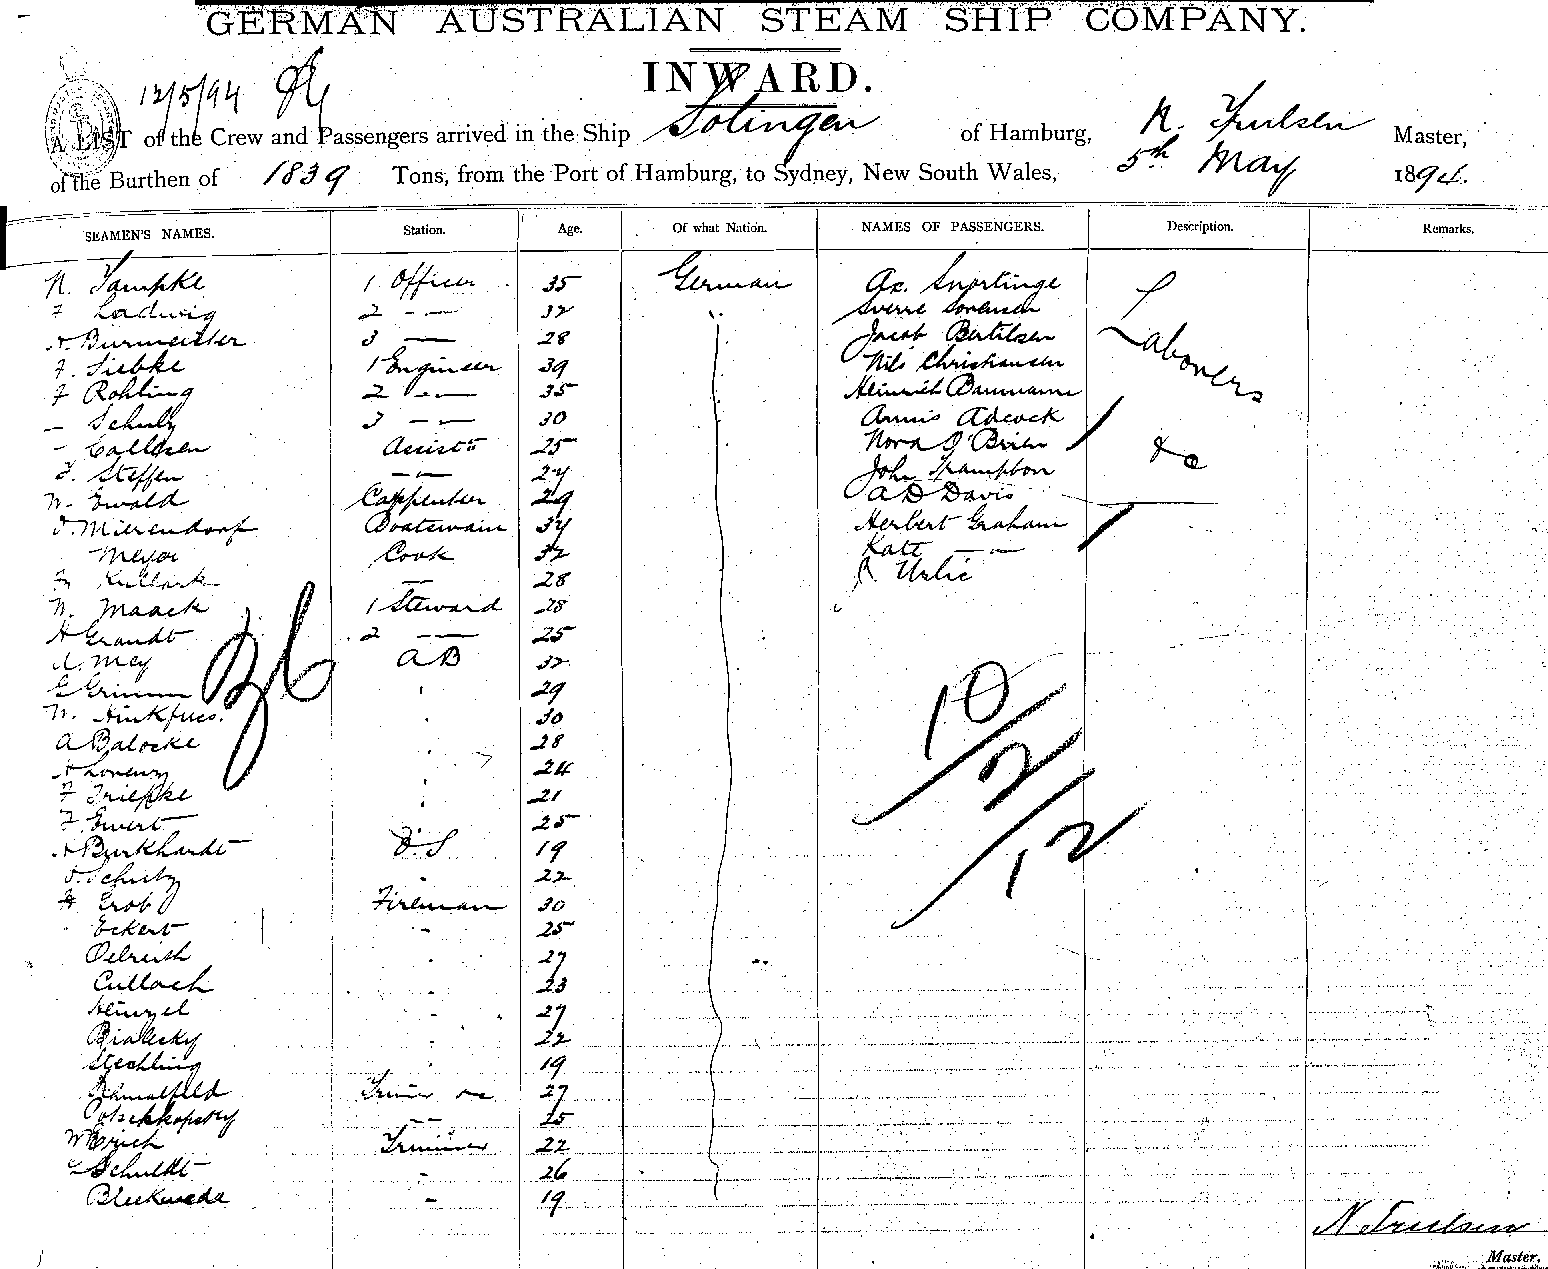 GERMAN AUSTRALIAN STEAM SHIP COMPANY.
INWARD.
12/5/94
A LIST of the Crew and Passengers arrived in the Ship Solingen of Hamburg, N. Trulsen Master,
of the Burthen of 1839 Tons, from the Port of Hamburg, to Sydney, New South Wales, 5th May 1894.
SEAMEN'S NAMES. Station. Age. Of what Nation. NAMES OF PASSENGERS. Description. Remarks.
N. Tampke 1 Officer 35 German Ax. Snortinge Laborers
F Ladwig 2 — — 32 " Sverre Sorensen
A. Burmeister 3 — 28 Jacob Bertilsen
F. Siebke 1 Engineer 39 Nils Christiansen
F Rohling 2 — — 35 Heinrich Baumann
— Schulz 3 — — 30 Annis Adcock
— Callesen Assist 25 Nora O'Brien &c
F. Steffen — — 27 John Frampton
W. Ewald Carpenter 29 A D Davis
F. Mierendorf Boatswain 34 Herbert Graham
Meyer Cook 32 Kate — —
Kullark — 28 Uslic
N. Maack 1 Steward 28
H Grandt 2 — — 25
A. Mey A B 32
G Grimm 29
W. Hinkfuss. 30
A Balocke 28
H Lorenz 24
F Triepke 21
F. Ewert 25
A Burkhardt O. S 19
O. Schulz 22
H Grob Fireman 30
Eckert 25
Oelrich 27
Cullach 23
Heinzel 27
Bialecky 22
Stechling 19
Schmalfeld 27
25
W Erich Trimmer 22
G Schuldt 26
19
36
10/2/12
N Trulsen
Master.